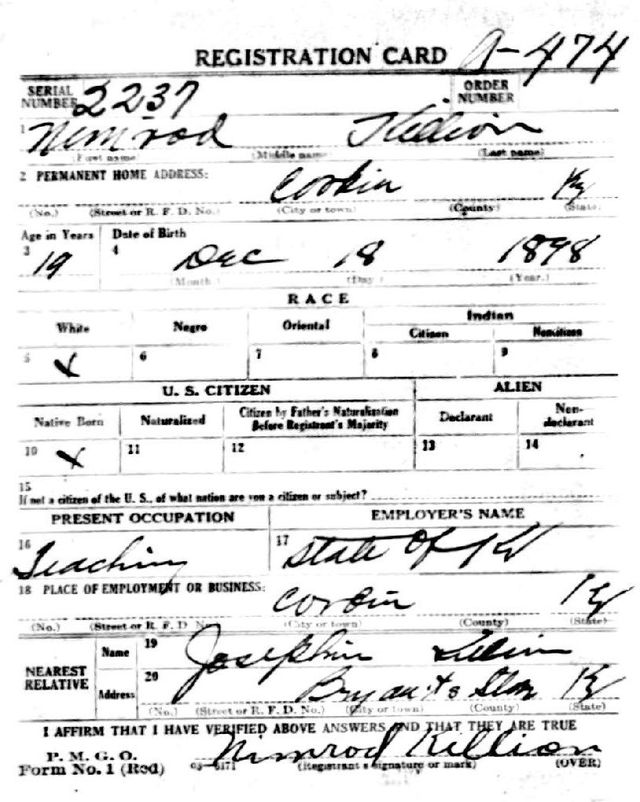 REGISTRATION CARD A-474
SERIAL NUMBER 2237 ORDER NUMBER
1 Nimrod Killion
(First name) (Middle name) (Last name)
2 PERMANENT HOME ADDRESS: Corbin Ky
(No.) (Street or R. F. D. No.) (City or town) (County) (State)
Age in Years Date of Birth
3 19 4 Dec 18 1898
(Month) (Day) (Year.)
RACE
White Negro Oriental Indian
Citizen Noncitizen
5 X 6 7 8 9
U. S. CITIZEN ALIEN
Native Born Naturalized Citizen by Father's Naturalization Before Registrant's Majority Declarant Non-declarant
10 X 11 12 13 14
15
If not a citizen of the U. S., of what nation are you a citizen or subject?
PRESENT OCCUPATION EMPLOYER'S NAME
16 Teaching 17 State Of Ky
18 PLACE OF EMPLOYMENT OR BUSINESS: Corbin Ky
(No.) (Street or R. F. D. No.) (City or town) (County) (State)
NEAREST RELATIVE Name 19 Josephin Killion
Address 20 Bryants Ky
(No.) (Street or R. F. D. No.) (City or town) (County) (State)
I AFFIRM THAT I HAVE VERIFIED ABOVE ANSWERS AND THAT THEY ARE TRUE
P. M. G. O.
Form No. 1 (Red) 03-6171 Nimrod Killion
(Registrant's signature or mark) (OVER)